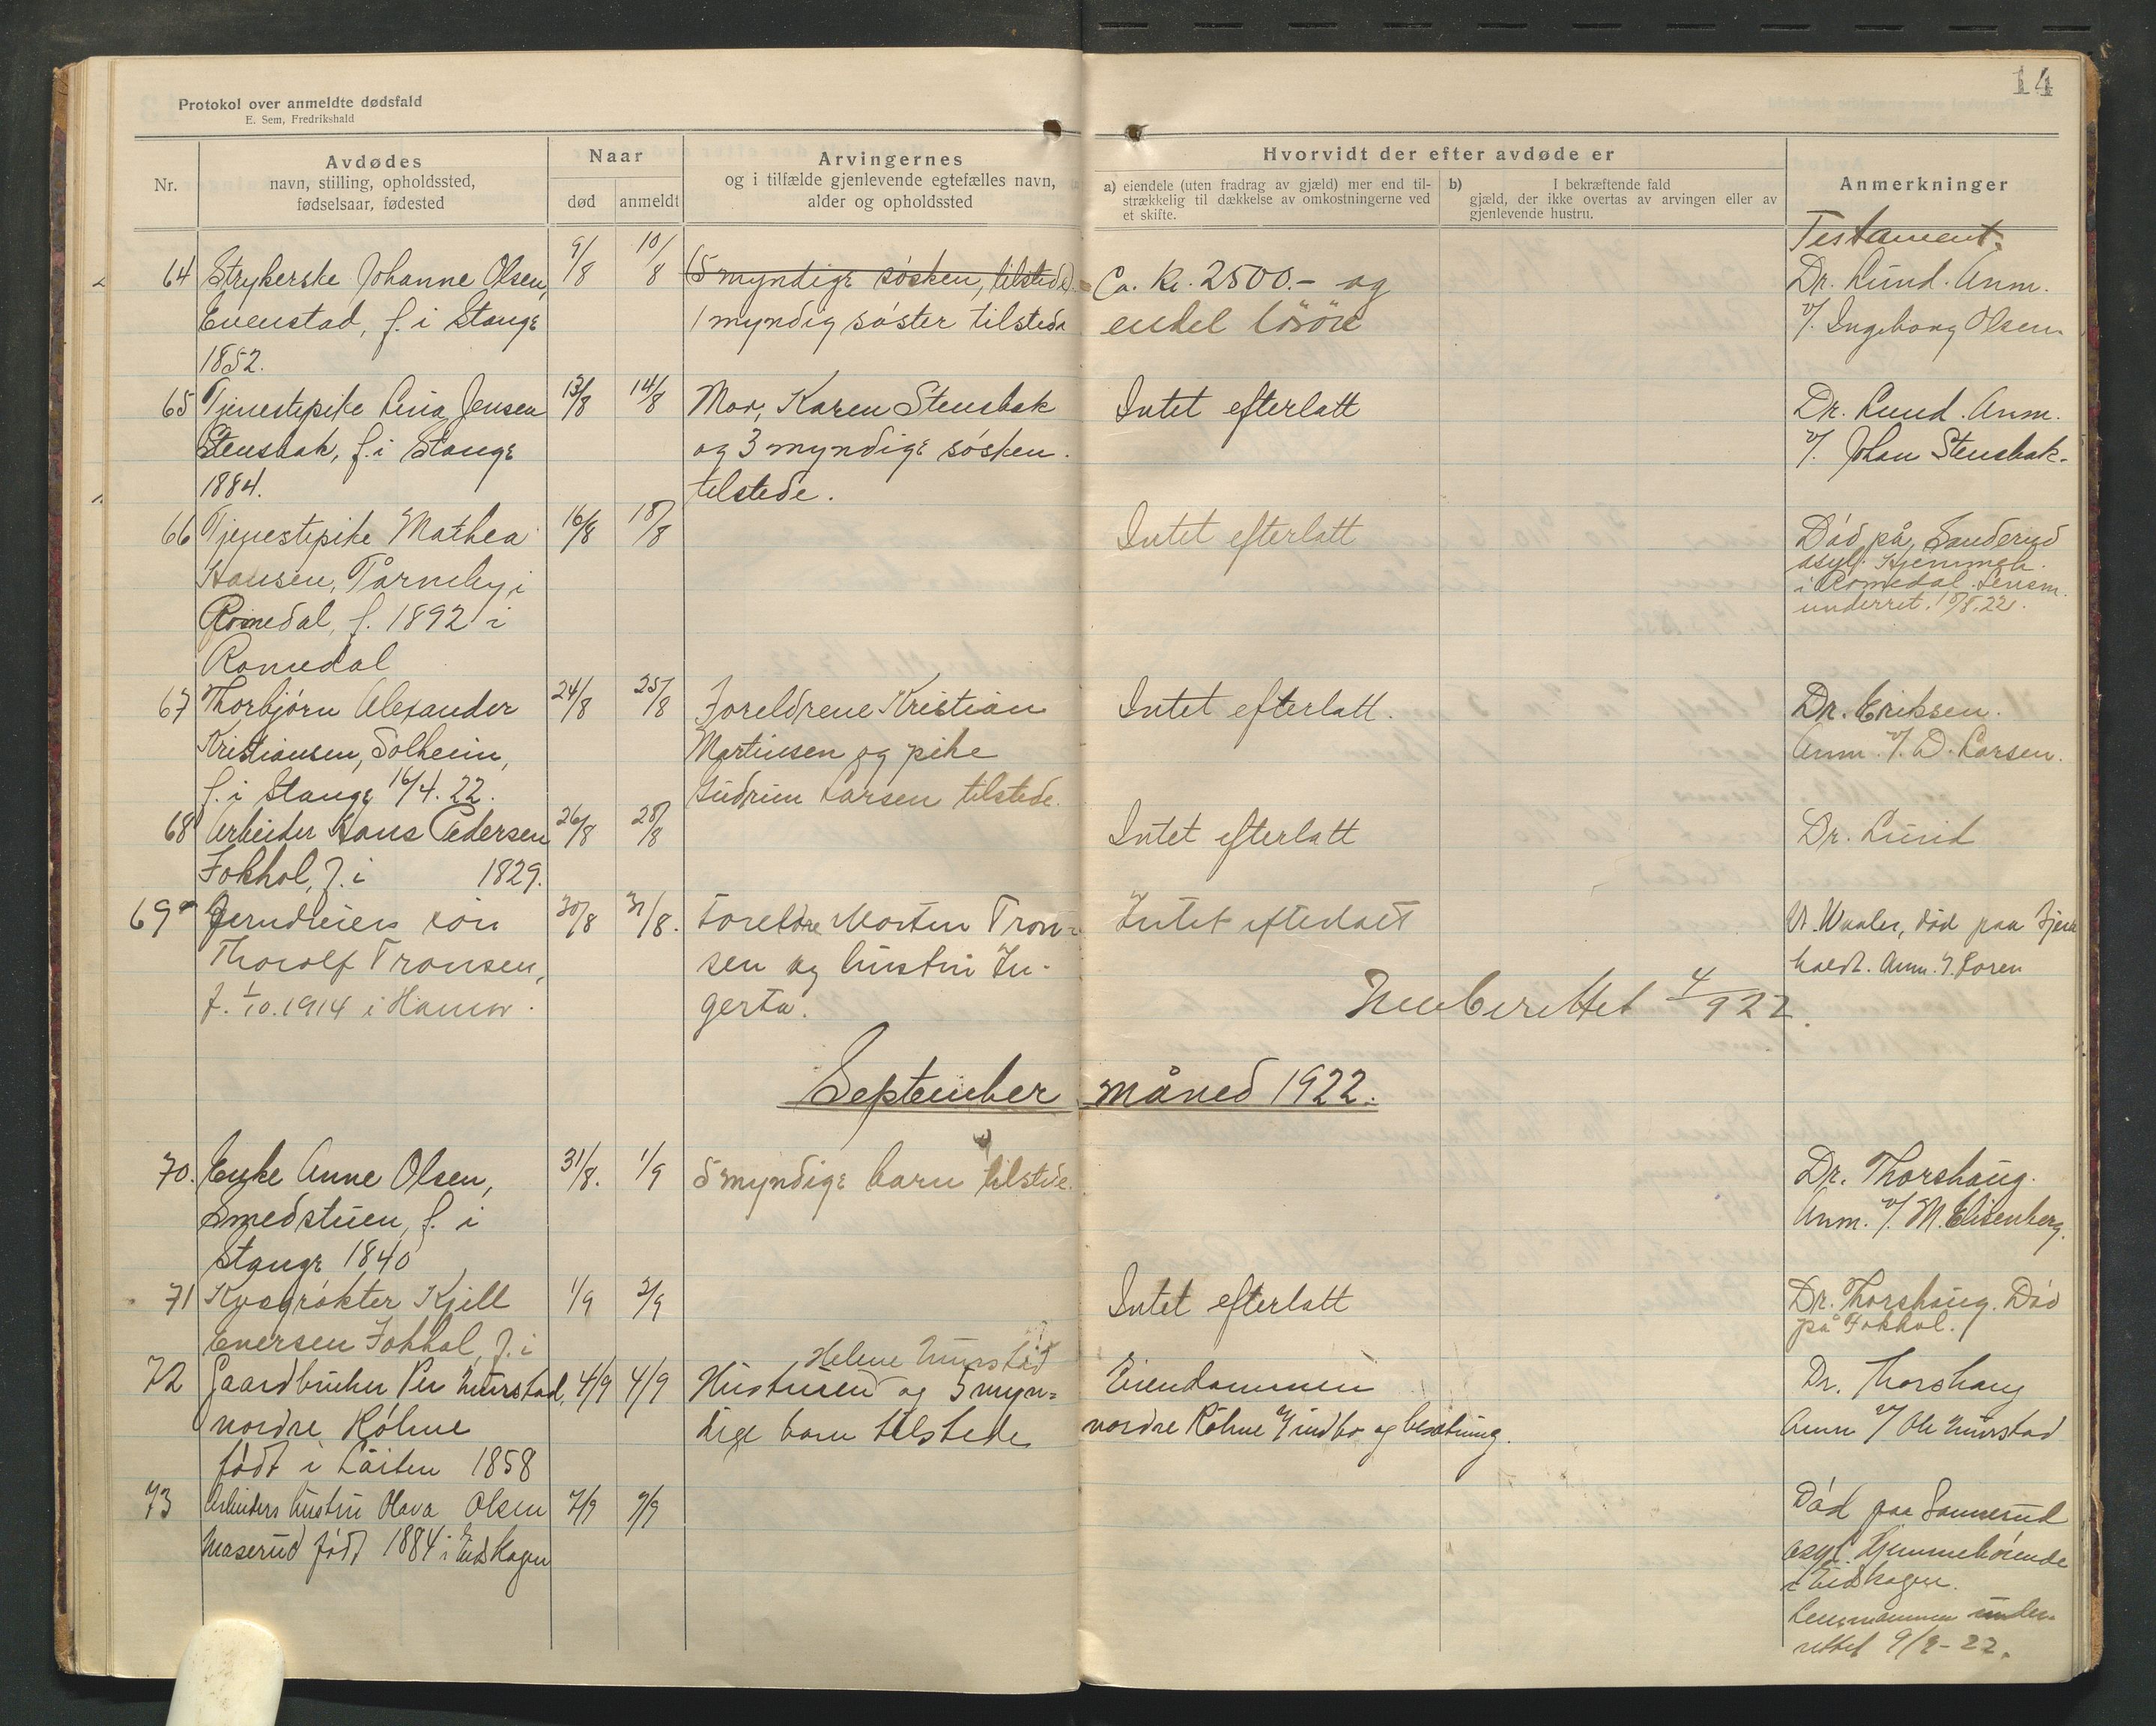 14
Protokol over anmeldte dødsfald
E. Sem, Fredrikshald
Nr.
Avdødes
navn, stilling, opholdssted,
fødselsaar, fødested
Naar
død
anmeldt
Arvingernes
og i tilfælde gjenlevende egtefælles navn,
alder og opholdssted
Hvorvidt der efter avdøde er
a) eiendele (uten fradrag av gjæld) mer end til-
strækkelig til dækkelse av omkostningerne ved
et skifte.
b) I bekræftende fald
gjæld, der ikke overtas av arvingen eller av
gjenlevende hustru.
Anmerkninger
64 Strykerske Johanne Olsen,
Evenstad, f. i Stange
1852.
9/8 10/8
(5 myndige søsken, tilstede)
1 myndig søster tilstede
Ca. kr. 2500.- og
endel løsøre
Testament.
Dr. Lund. Anm.
v/. Ingeborg Olsen
65 Tjenestepike Lina Jensen
Stensbak, f. i Stange
1884.
13/8 14/8
Mor, Karen Stensbak
og 3 myndige søsken.
tilstede.
Intet efterlatt
Dr. Lund. Anm.
v/. Johan Stensbak.
66 Tjenestepike Mathea
Hansen, Tårneby i
Romedal, f. 1892 i
Romedal
16/8 18/8
Intet efterlatt
Død på Sanderud
asyl. Hjemmeh.
i Romedal. Lensm.
underret. 18/8.22.
67 Thorbjørn Alexander
Kristiansen, Solheim,
f. i Stange 16/4.22.
24/8 25/8
Foreldrene Kristian
Martinsen og pike
Gudrun Larsen tilstede.
Intet efterlatt.
Dr. Eriksen.
Anm. v/. D. Larsen.
68 Arbeider Hans Pedersen
Fokhol, f. i 1829.
26/8 28/8
Intet efterlatt
Dr. Lund
69 søn
Thorolf Tronsen,
f. 1/10.1914 i Hamar.
30/8 31/8.
Foreldre Morten Tron-
sen og hustru In-
gerta.
Intet efterlatt
Waaler, død paa
Anm.
Innberettet 4/9 22.
September måned 1922.
70. Enke Anne Olsen,
Smedstuen, f. i
Stange 1840
31/8. 1/9
5 myndige barn tilstede.
Dr. Thorshaug.
Anm. v/. M. Elisenberg.
71 Kvegrøkter Kjell
Eversen Fokhol, f. i
1/9 2/9
Intet efterlatt
Dr. Thorshaug. Død
på Fokhol.
72 Gaardbruker Per Murstad,
nordre Røhne
født i Løiten 1858
4/9 4/9
Helene Murstad
Hustruen og 5 myn-
dige barn tilstede
Eiendommen
nordre Røhne m/ indbo og besætning.
Dr. Thorshaug
Anm v/ Ole Murstad
73 Arbeiders hustru Olava Olsen
Maserud født 1884 i Eidskogen
7/9 9/9
Død paa Sannerud
asyl. Hjemmehørende
i Eidskogen.
Lensmannen under-
rettet 9/9-22.